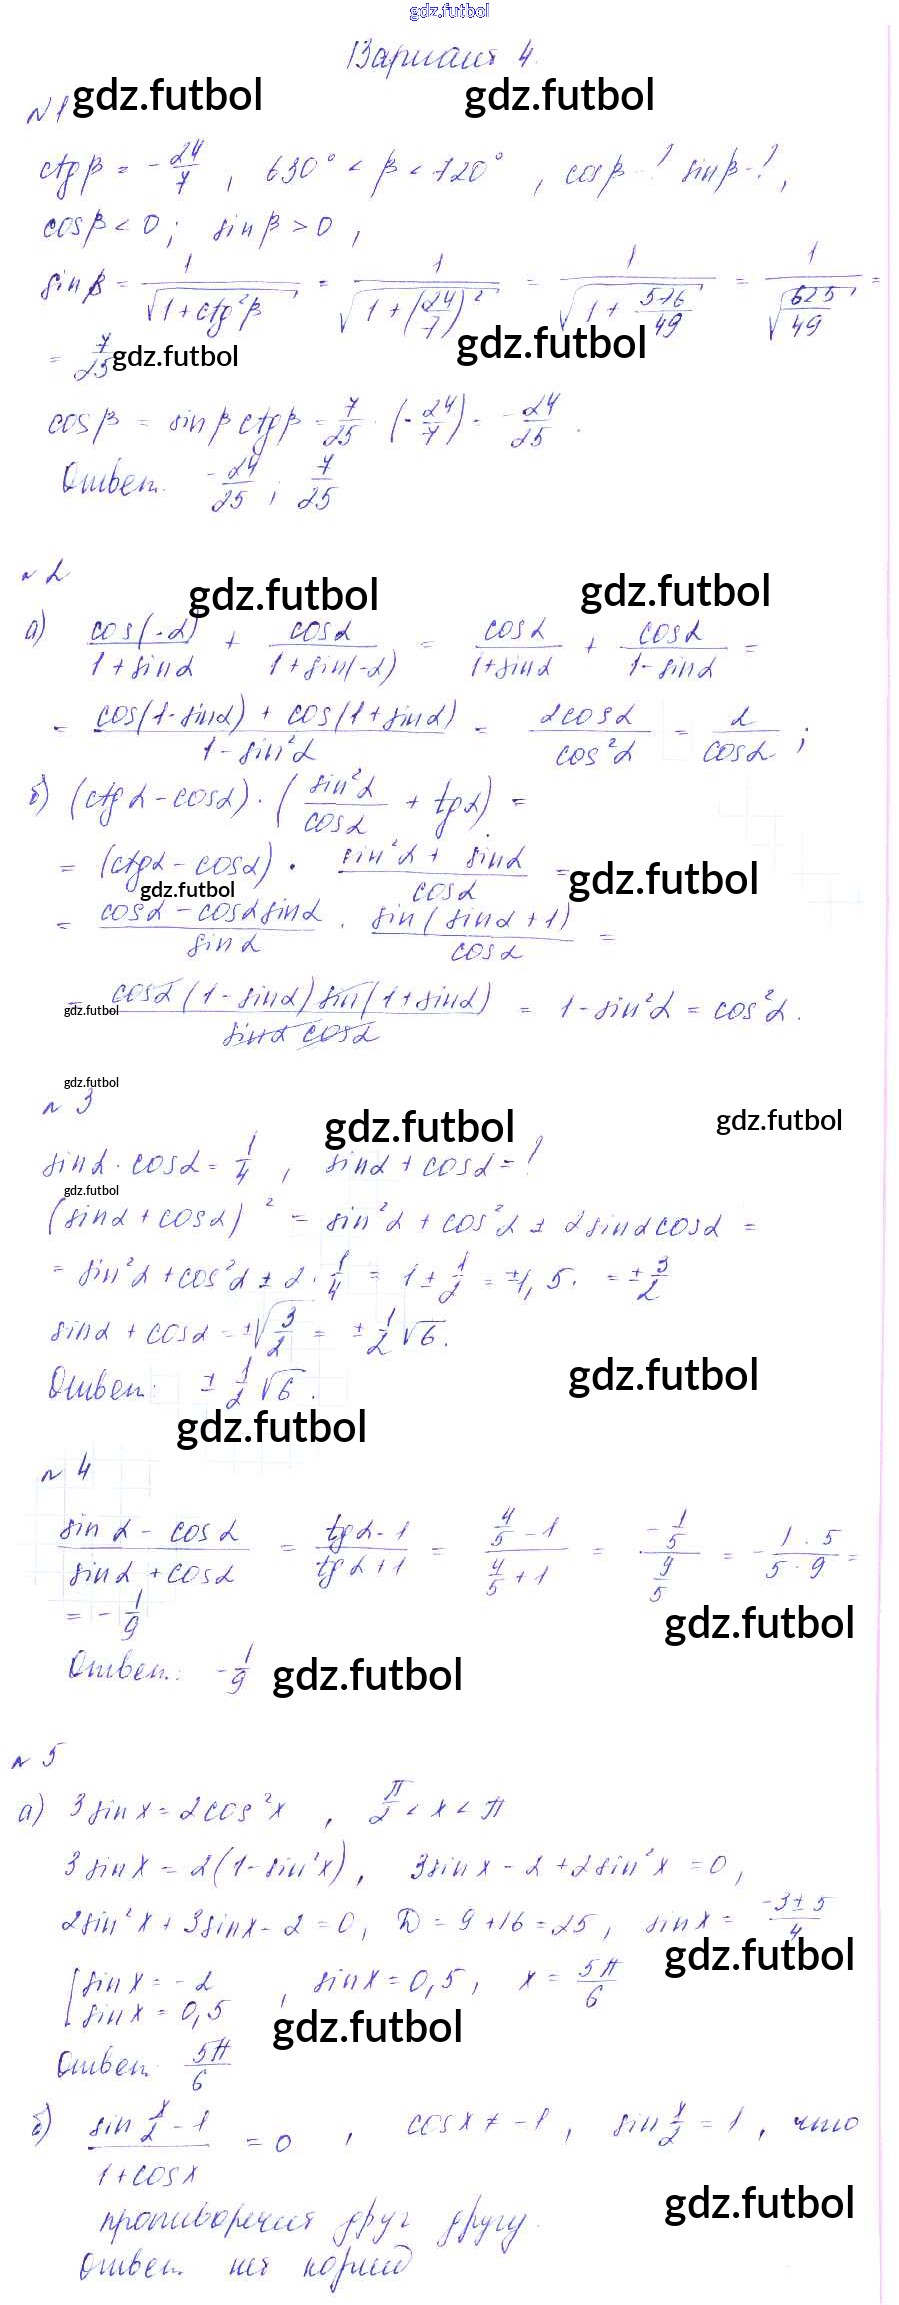 gdz.futbol
Вариант 4.
gdz.futbol gdz.futbol
№1
ctgβ = -24/7, 630° < β < 720°, cosβ-? sinβ-?,
cosβ < 0; sinβ > 0,
sinβ = 1/√(1+ctg²β) = 1/√(1+(24/7)²) = 1/√(1+576/49) = 1/√(625/49) =
= 7/25 gdz.futbol gdz.futbol
cosβ = sinβ ctgβ = 7/25 · (-24/7) = -24/25.
Ответ. -24/25; 7/25
№2
gdz.futbol gdz.futbol
а) cos(-α)/(1+sinα) + cosα/(1+sin(-α)) = cosα/(1+sinα) + cosα/(1-sinα) =
= (cos(1-sinα) + cos(1+sinα))/(1-sin²α) = 2cosα/cos²α = 2/cosα;
б) (ctgα-cosα)·(sin²α/cosα + tgα) =
= (ctgα-cosα) · (sin²α + sinα)/cosα =
gdz.futbol gdz.futbol
= (cosα-cosαsinα)/sinα · sin(sinα+1)/cosα =
= cosα(1-sinα)sin(1+sinα)/(sinα cosα) = 1-sin²α = cos²α.
gdz.futbol
gdz.futbol
№3
gdz.futbol gdz.futbol
sinα·cosα = 1/4, sinα+cosα = ?
gdz.futbol
(sinα+cosα)² = sin²α+cos²α ± 2sinαcosα =
= sin²α+cos²α ± 2·1/4 = 1 ± 1/2 = ±1,5. = ±3/2
sinα+cosα = ±√(3/2) = ±1/2√6.
Ответ: ±1/2√6.
gdz.futbol
gdz.futbol
№4
(sinα-cosα)/(sinα+cosα) = (tgα-1)/(tgα+1) = (4/5-1)/(4/5+1) = (-1/5)/(9/5) = -(1·5)/(5·9) =
= -1/9
gdz.futbol
Ответ: -1/9 gdz.futbol
№5
а) 3sinx = 2cos²x, π/2 < x < π
3sinx = 2(1-sin²x), 3sinx-2+2sin²x = 0,
2sin²x+3sinx-2 = 0, D = 9+16 = 25, sinx = (-3±5)/4
gdz.futbol
[sinx = -2
sinx = 0,5, sinx = 0,5, x = 5π/6
gdz.futbol
Ответ. 5π/6
б) (sin x/2 - 1)/(1+cosx) = 0, cosx ≠ -1, sin x/2 = 1, что
gdz.futbol
противоречит друг другу.
Ответ. нет корней